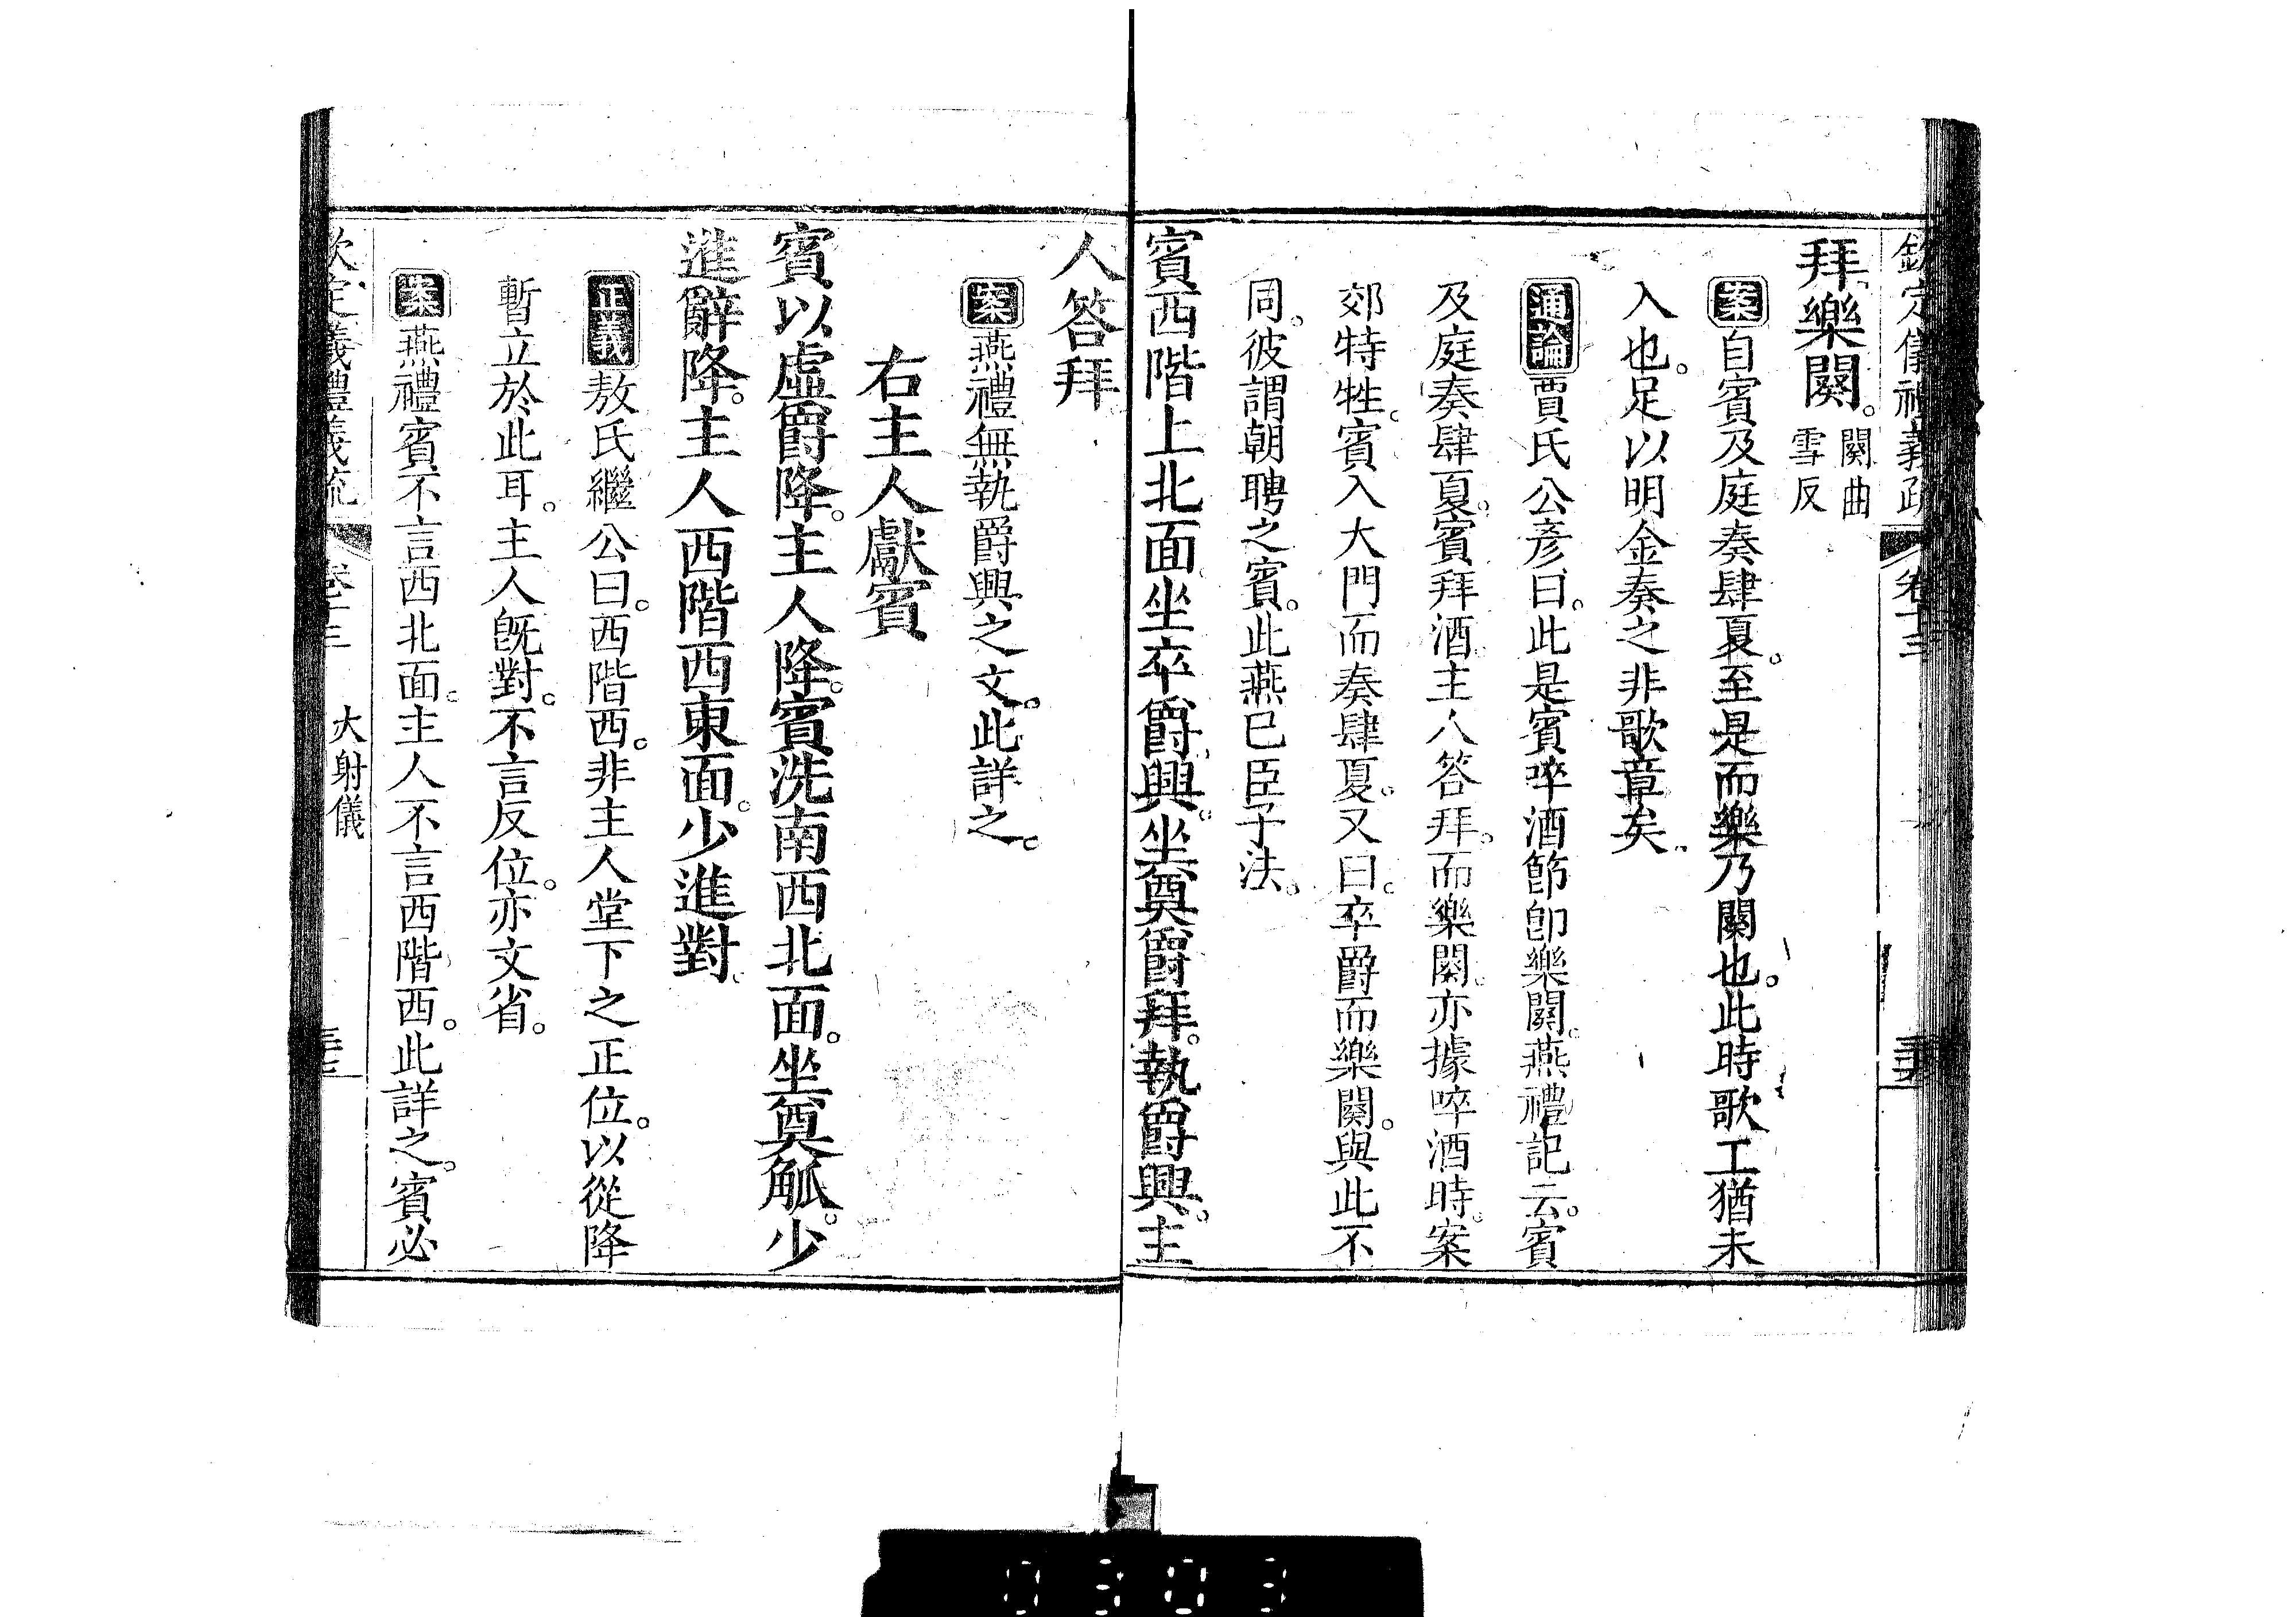 欽定儀禮義疏 卷十三
拜樂闋。闋曲雪反
案自賓及庭奏肆夏。至是而樂乃闋也。此時歌工猶未
入也。足以明金奏之非歌章矣
通論賈氏公彥曰。此是賓啐酒節卽樂闋。燕禮記云。賓
及庭奏肆夏。賓拜酒。主人答拜。而樂闋。亦據啐酒時。案
郊特牲。賓入大門而奏肆夏。又曰。卒爵而樂闋。與此不
同。彼謂朝聘之賓。此燕已臣子法。
賓西階上北面坐卒爵興。坐奠爵拜。執爵興。主
人答拜
案燕禮無執爵興之文。此詳之。
右主人獻賓
賓以虛爵降。主人降。賓洗南西北面。坐奠觚。少
進辭降。主人西階西東面。少進對
正義敖氏繼公曰。西階西。非主人堂下之正位。以從降
暫立於此耳。主人旣對。不言反位。亦文省。
案燕禮賓不言西北面。主人不言西階西。此詳之。賓必
欽定儀禮義疏 卷十三 大射儀